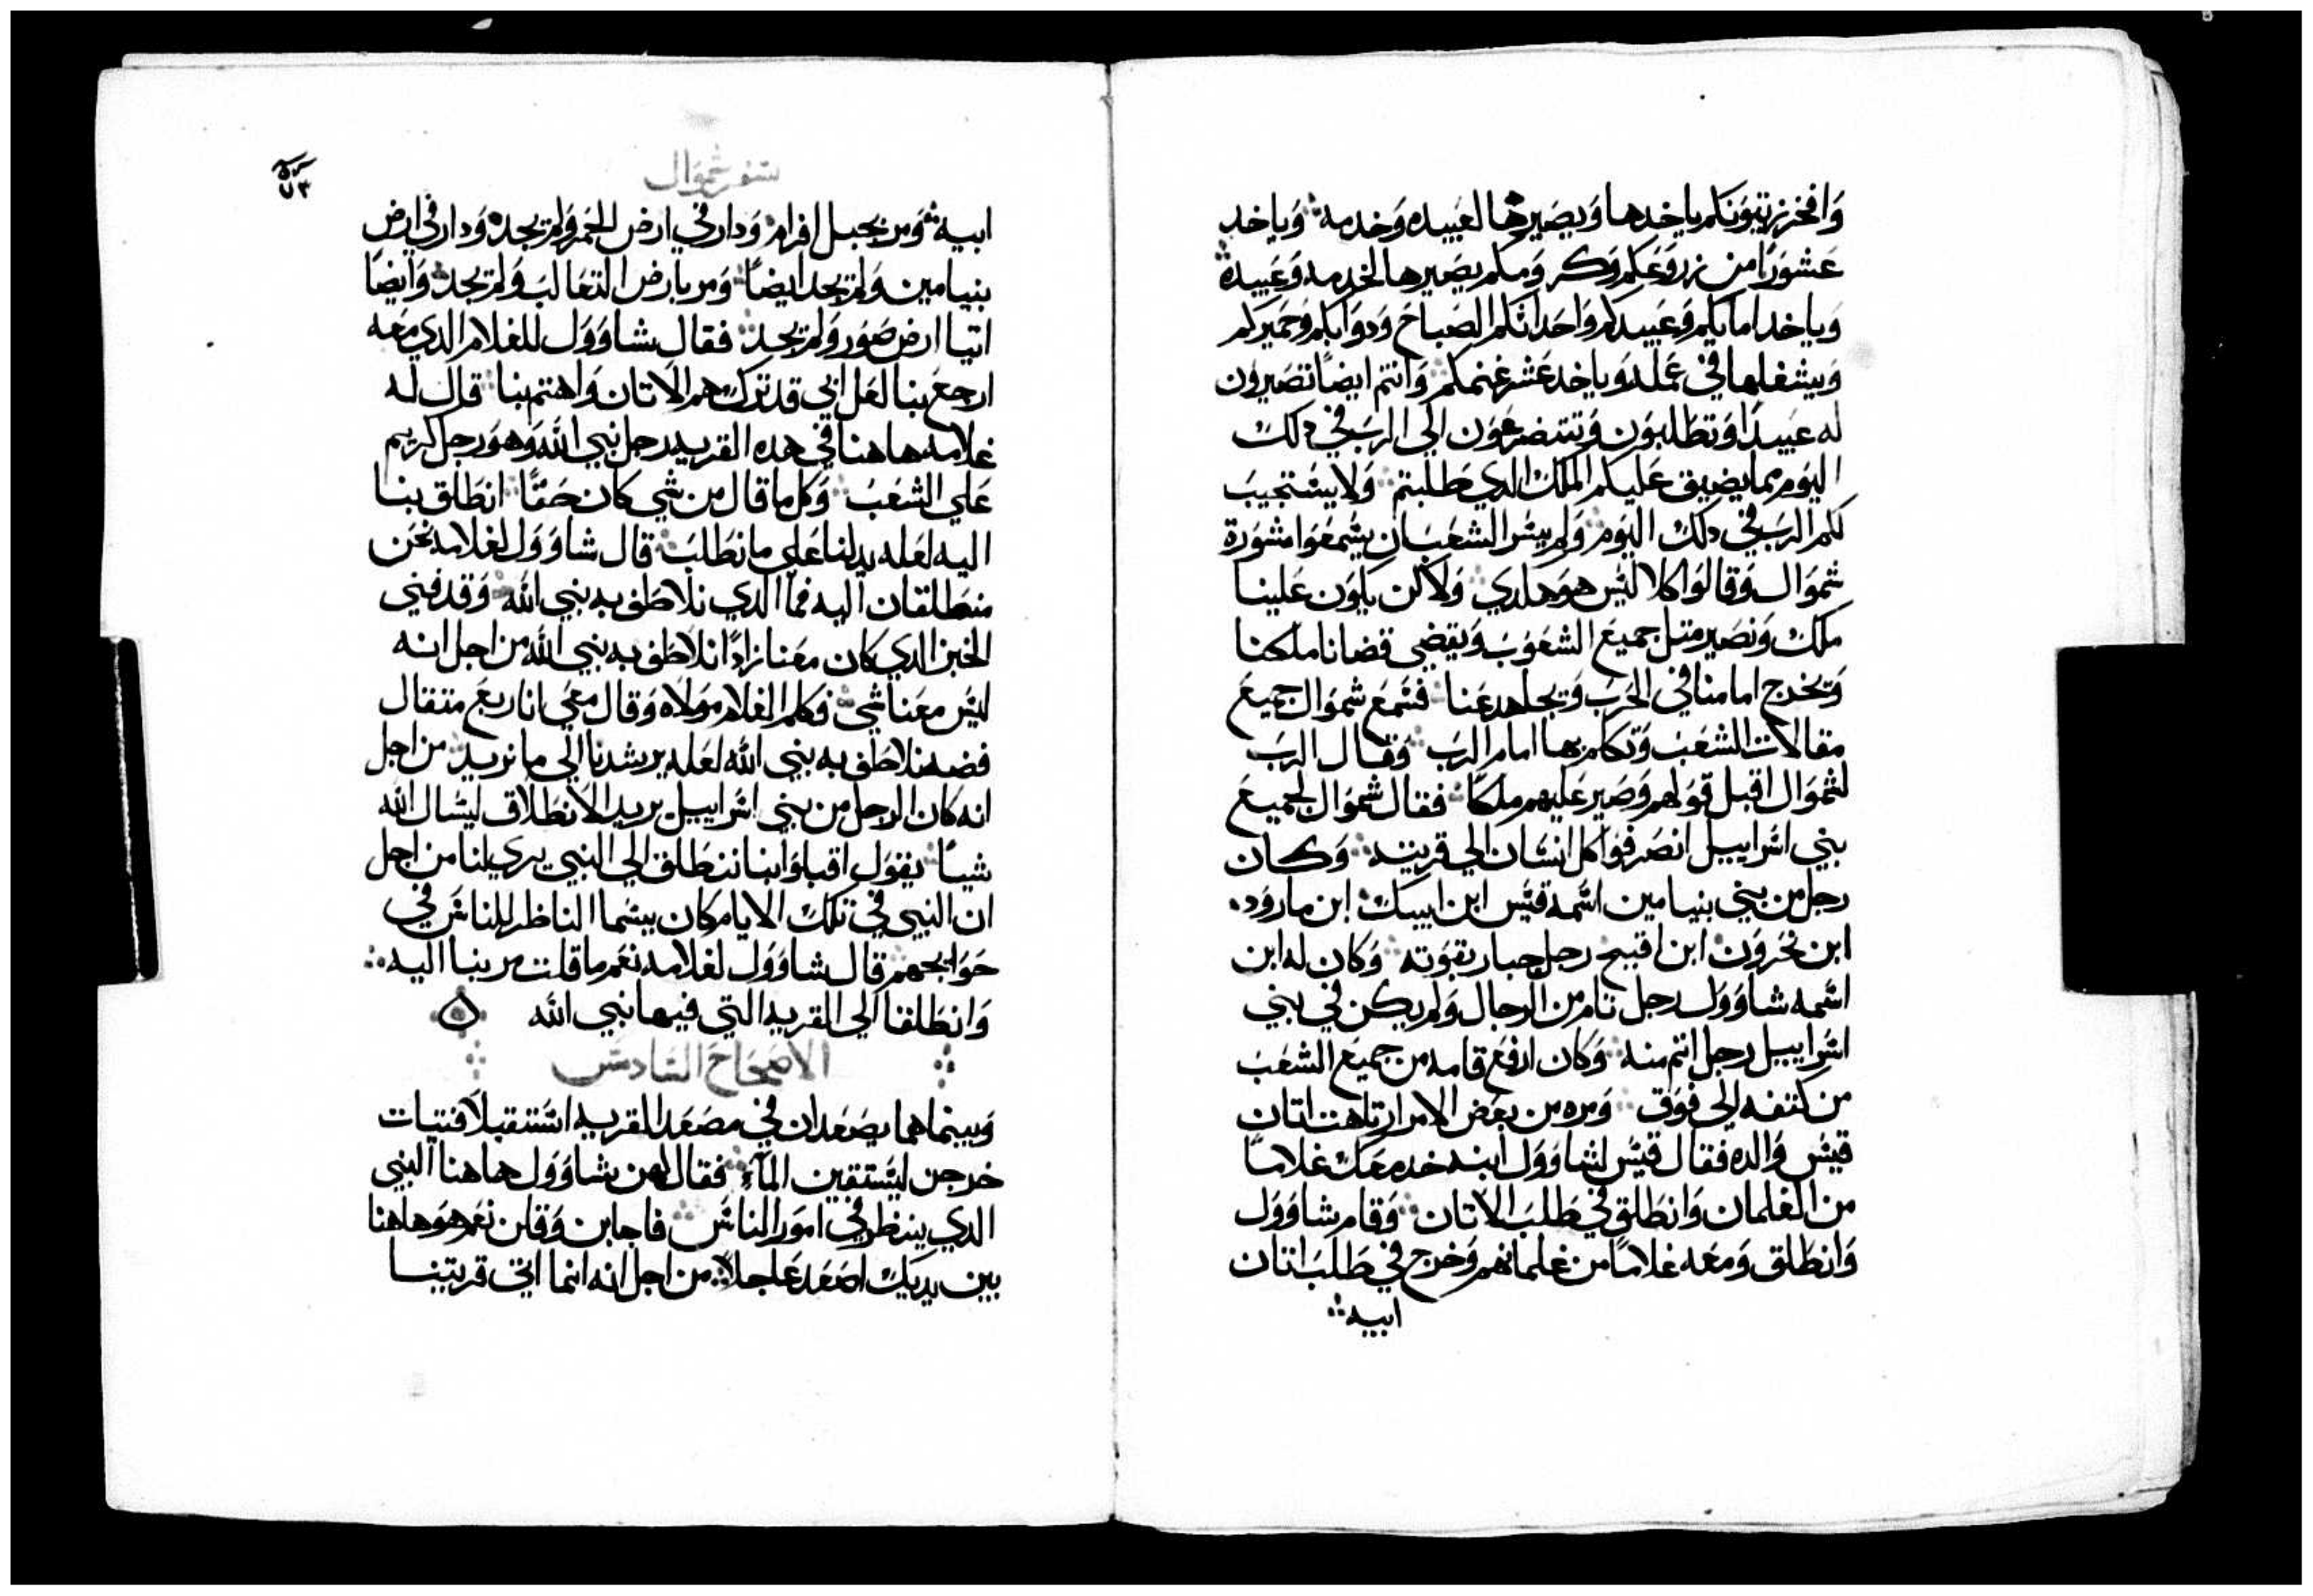 وافخر زيتونكم ياخدها ويصيرها لعبيده وخدمه وياخد
عشورًا من زروعكم وكرومكم يصيرها لخدمه وعبيده
وياخد امايكم وعبيدكم واحداتكم الصباح ودوابكم وحميركم
ويشغلها في عمله وياخد عشر غنمكم وانتم ايضًا تصيرون
له عبيدًا وتطلبون وتتضرعون الي الرب في دلك
اليوم مما يضيق عليكم الملك الدي طلبتم ولا يستجيب
لكم الرب في دلك اليوم ولم يسر الشعب ان يسمعوا مشورة
شموال وقالوا كلا ليس هو هكدي ولاكن يكون علينا
ملك ونصير متل جميع الشعوب ويقضي قضانا ملكنا
ويخرج امامنا في الحرب ويجاهد عنا فسمع شموال جميع
مقالات الشعب وتكلم بها امام الرب وقال الرب
لشموال اقبل قولهم وصير عليهم ملكًا فقال شموال لجميع
بني اسراييل انصرفوا كل انسان الي قريته وكان
رجل من بني بنيامين اسمه قيس ابن ابيك ابن ماروده
ابن نحرون ابن اقبيح رجل جبار بقوته وكان له ابن
اسمه شاوول رجل تام من الرجال ولم يكن في بني
اسراييل رجل اتم منه وكان ارفع قامه من جميع الشعب
من كتفه الي فوق ومره من بعض الامرار تاهت اتان
قيس والده فقال قيس لشاوول ابنه خد معك غلامًا
من الغلمان وانطلق في طلب الاتان وقام شاوول
وانطلق ومعه غلامًا من غلمانهم وخرج في طلب اتان
ابيه
سفر شموال
ابيه ومر بجبل افرام ودار في ارض الحمر ولم يجد ودار في ارض
بنيامين ولم يجد ايضًا ومر بارض التعالب ولم يجد وايضًا
اتيا ارض صور ولم يجد فقال شاوول للغلام الدي معه
ارجع بنا لعل ابي قد ترك هم الاتان واهتم بنا قال له
غلامه هاهنا في هده القريه رجل نبي الله وهو رجل كريم
علي الشعب وكلما قال من شي كان حقًا انطلق بنا
اليه لعله يدلنا علي ما نطلب قال شاوول لغلامه نحن
منطلقان اليه فما الدي نلاطف به نبي الله وقد فني
الخبز الدي كان معنا زادًا نلاطف به نبي الله من اجل انه
ليس معنا شي فكلم الغلام مولاه وقال معي انا ربع متقال
فضه نلاطف به نبي الله لعله يرشدنا الي ما نريد من اجل
انه كان الرجل من بني اسراييل يريد الانطلاق ليسال الله
شيًا يقول اقبلوا بنا ننطلق الي النبي يري لنا من اجل
ان النبي في تلك الايام كان يسما الناظر للناس في
حوايجهم قال شاوول لغلامه نعم ما قلت مر بنا اليه
وانطلقا الي القريه التي فيها نبي الله
الاصحاح السادس
وبينما هما يصعدان في مصعد القريه استقبلا فتيات
خرجن ليستقين المآء فقال لهن شاوول هاهنا النبي
الدي ينظر في امور الناس فاجابن وقلن نعم هو هاهنا
بين يديك اصعد عاجلاً من اجل انه انما اتي قريتنا